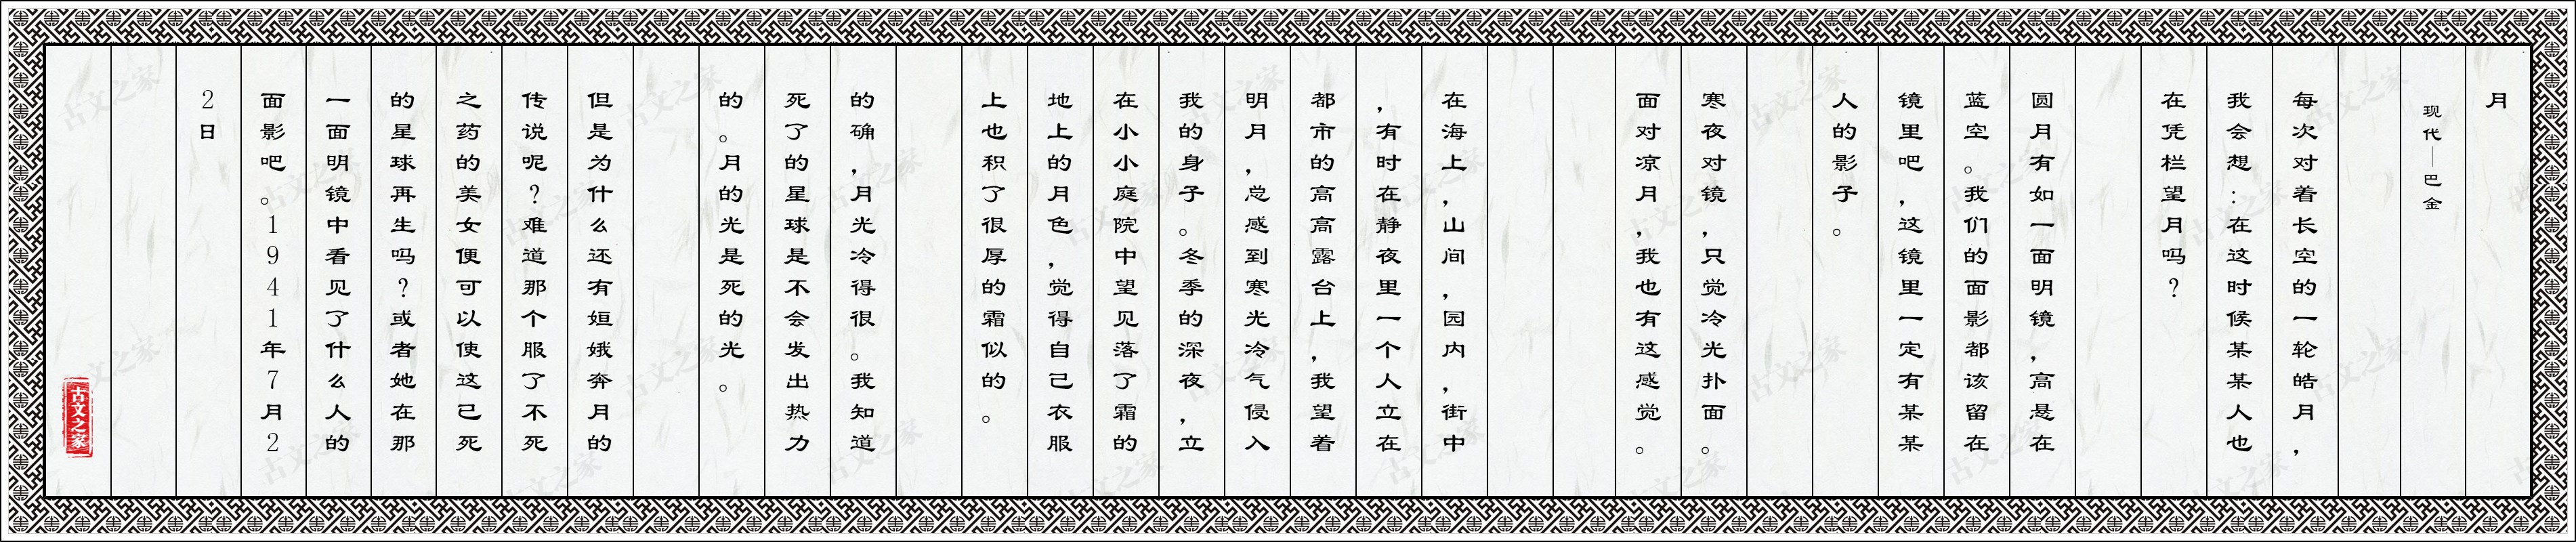 月
现代—巴金
每次对着长空的一轮皓月，
我会想：在这时候某某人也
在凭栏望月吗？
圆月有如一面明镜，高悬在
蓝空。我们的面影都该留在
镜里吧，这镜里一定有某某
人的影子。
寒夜对镜，只觉冷光扑面。
面对凉月，我也有这感觉。
在海上，山间，园内，街中
，有时在静夜里一个人立在
都市的高高露台上，我望着
明月，总感到寒光冷气侵入
我的身子。冬季的深夜，立
在小小庭院中望见落了霜的
地上的月色，觉得自己衣服
上也积了很厚的霜似的。
的确，月光冷得很。我知道
死了的星球是不会发出热力
的。月的光是死的光。
但是为什么还有姮娥奔月的
传说呢？难道那个服了不死
之药的美女便可以使这已死
的星球再生吗？或者她在那
一面明镜中看见了什么人的
面影吧。1941年7月2
2日
古文之家